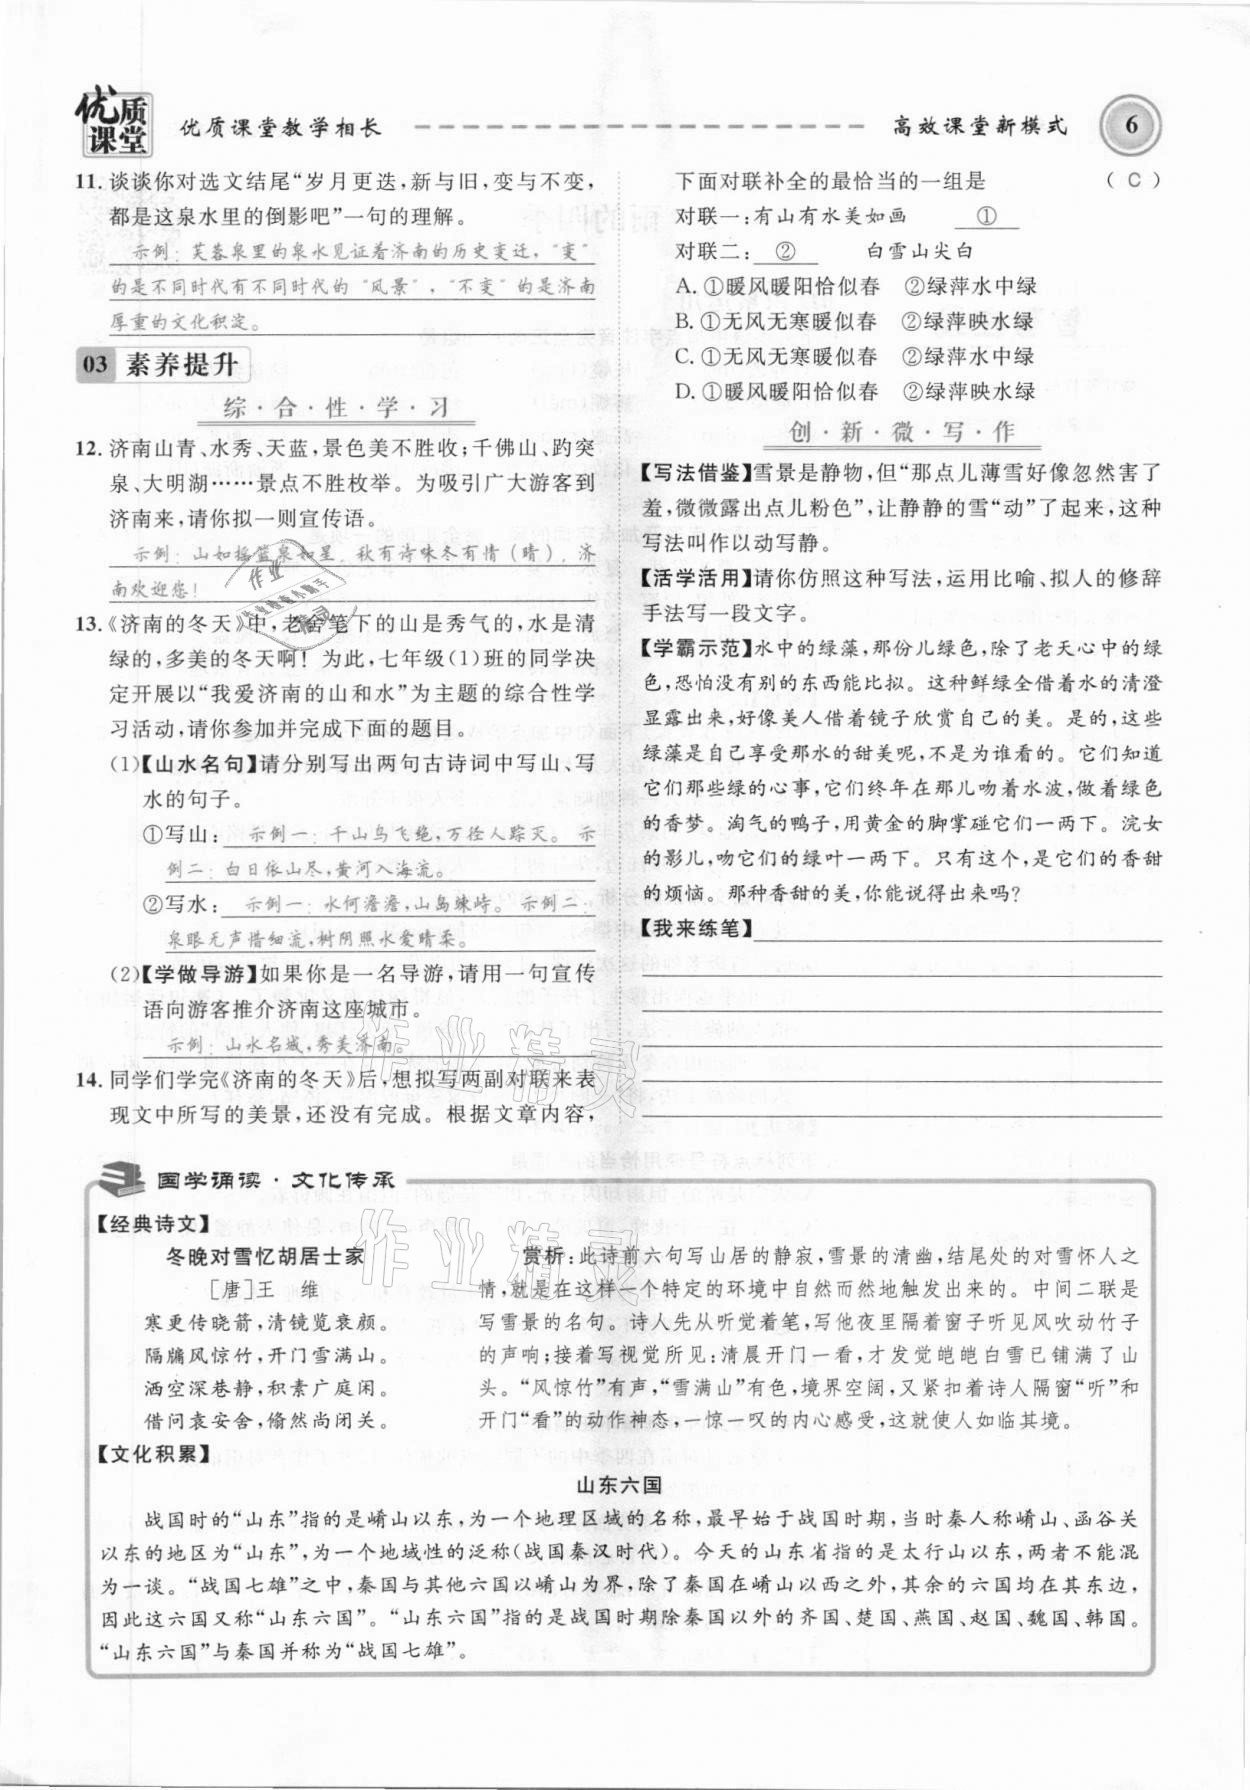 优质课堂
优质课堂教学相长
高效课堂新模式
6
11. 谈谈你对选文结尾“岁月更迭,新与旧,变与不变,
都是这泉水里的倒影吧”一句的理解。
示例:芙蓉泉里的泉水见证着济南的历史变迁,“变”
的是不同时代有不同时代的“风景”,“不变”的是济南
厚重的文化积淀。
03 素养提升
综·合·性·学·习
12. 济南山青、水秀、天蓝,景色美不胜收;千佛山、趵突
泉、大明湖……景点不胜枚举。为吸引广大游客到
济南来,请你拟一则宣传语。
示例:山如摇篮泉如星,秋有诗味冬有情(晴),济
南欢迎您!
13.《济南的冬天》中,老舍笔下的山是秀气的,水是清
绿的,多美的冬天啊!为此,七年级(1)班的同学决
定开展以“我爱济南的山和水”为主题的综合性学
习活动,请你参加并完成下面的题目。
(1)【山水名句】请分别写出两句古诗词中写山、写
水的句子。
①写山:示例一:千山鸟飞绝,万径人踪灭。示
例二:白日依山尽,黄河入海流。
②写水:示例一:水何澹澹,山岛竦峙。示例二:
泉眼无声惜细流,树阴照水爱晴柔。
(2)【学做导游】如果你是一名导游,请用一句宣传
语向游客推介济南这座城市。
示例:山水名城,秀美济南。
14. 同学们学完《济南的冬天》后,想拟写两副对联来表
现文中所写的美景,还没有完成。根据文章内容,
下面对联补全的最恰当的一组是 ( C )
对联一:有山有水美如画 ①
对联二: ② 白雪山尖白
A. ①暖风暖阳恰似春 ②绿萍水中绿
B. ①无风无寒暖似春 ②绿萍映水绿
C. ①无风无寒暖似春 ②绿萍水中绿
D. ①暖风暖阳恰似春 ②绿萍映水绿
创·新·微·写·作
【写法借鉴】雪景是静物,但“那点儿薄雪好像忽然害了
羞,微微露出点儿粉色”,让静静的雪“动”了起来,这种
写法叫作以动写静。
【活学活用】请你仿照这种写法,运用比喻、拟人的修辞
手法写一段文字。
【学霸示范】水中的绿藻,那份儿绿色,除了老天心中的绿
色,恐怕没有别的东西能比拟。这种鲜绿全借着水的清澄
显露出来,好像美人借着镜子欣赏自己的美。是的,这些
绿藻是自己享受那水的甜美呢,不是为谁看的。它们知道
它们那些绿的心事,它们终年在那儿吻着水波,做着绿色
的香梦。淘气的鸭子,用黄金的脚掌碰它们一两下。浣女
的影儿,吻它们的绿叶一两下。只有这个,是它们的香甜
的烦恼。那种香甜的美,你能说得出来吗?
【我来练笔】
国学诵读·文化传承
【经典诗文】
冬晚对雪忆胡居士家
[唐]王 维
寒更传晓箭,清镜览衰颜。
隔牖风惊竹,开门雪满山。
洒空深巷静,积素广庭闲。
借问袁安舍,翛然尚闭关。
赏析:此诗前六句写山居的静寂,雪景的清幽,结尾处的对雪怀人之
情,就是在这样一个特定的环境中自然而然地触发出来的。中间二联是
写雪景的名句。诗人先从听觉着笔,写他夜里隔着窗子听见风吹动竹子
的声响;接着写视觉所见:清晨开门一看,才发觉皑皑白雪已铺满了山
头。“风惊竹”有声,“雪满山”有色,境界空阔,又紧扣着诗人隔窗“听”和
开门“看”的动作神态,一惊一叹的内心感受,这就使人如临其境。
【文化积累】
山东六国
战国时的“山东”指的是崤山以东,为一个地理区域的名称,最早始于战国时期,当时秦人称崤山、函谷关
以东的地区为“山东”,为一个地域性的泛称(战国秦汉时代)。今天的山东省指的是太行山以东,两者不能混
为一谈。“战国七雄”之中,秦国与其他六国以崤山为界,除了秦国在崤山以西之外,其余的六国均在其东边,
因此这六国又称“山东六国”。“山东六国”指的是战国时期除秦国以外的齐国、楚国、燕国、赵国、魏国、韩国。
“山东六国”与秦国并称为“战国七雄”。
作业精灵
作业精灵